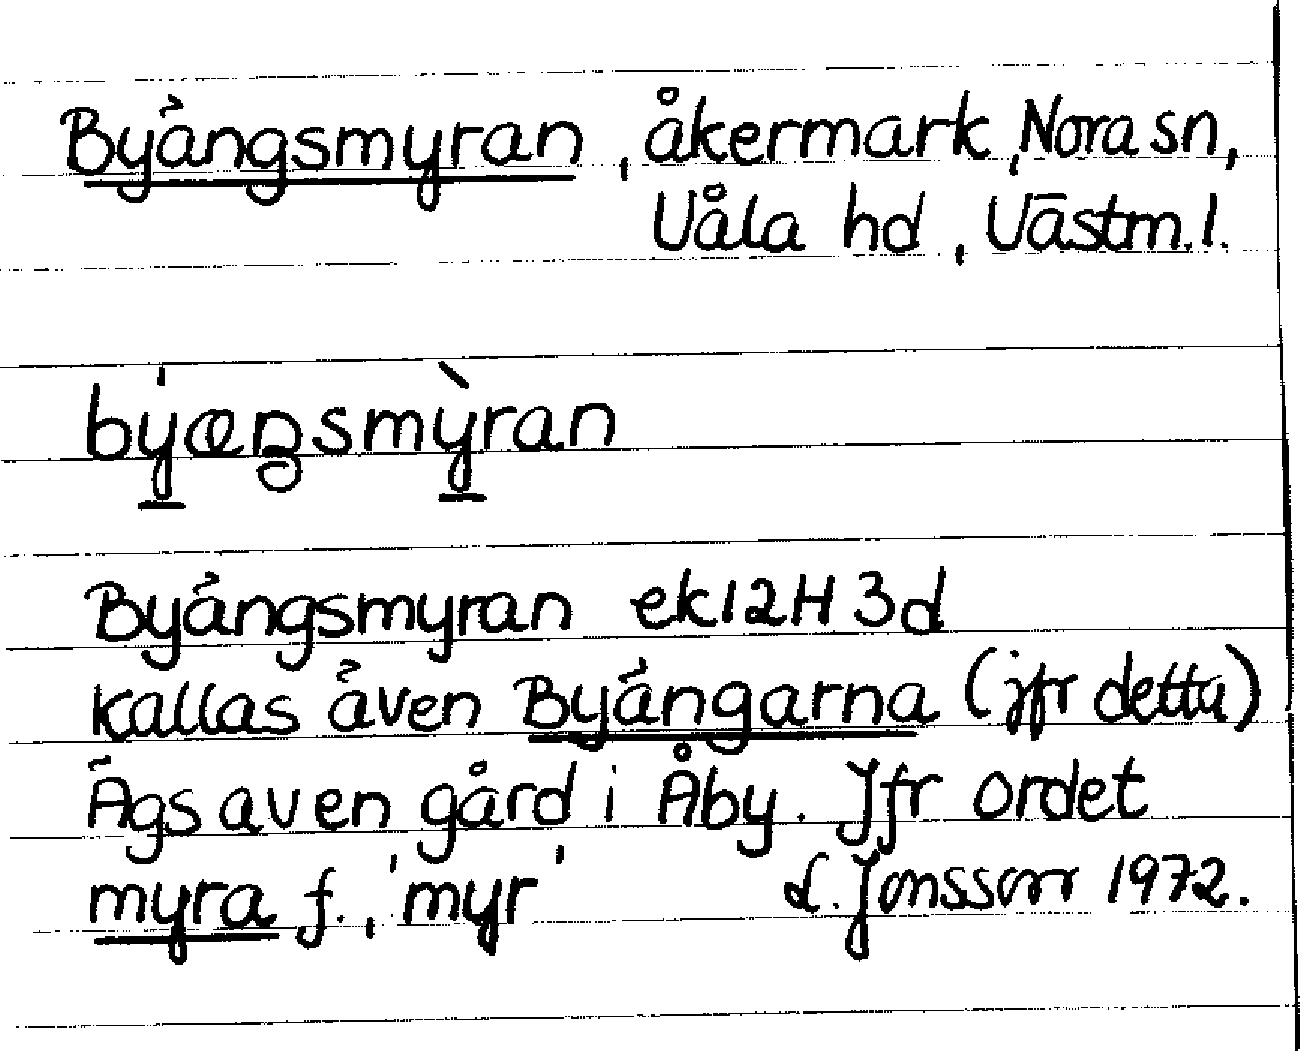 Byängsmyran, åkermark, Nora sn,
Våla hd, Västm. l.
býæŋsmỳran
Byängsmyran ek 12H 3d
kallas även Byängarna (jfr detta)
Ägs av en gård i Åby. Jfr ordet
myra f., 'myr' L. Jonsson 1972.